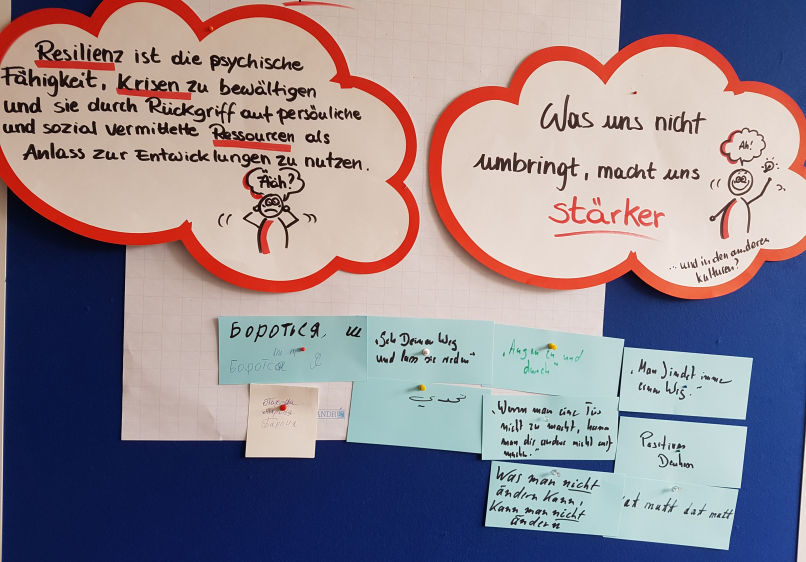 Resilienz ist die psychische
Fähigkeit, Krisen zu bewältigen
und sie durch Rückgriff auf persönliche
und sozial vermittelte Ressourcen als
Anlass zur Entwicklungen zu nutzen.
Ääh?
Was uns nicht
umbringt, macht uns
stärker
Ah!
... und in den anderen
Kulturen?
Бороться,
Бороться
„Geh Deinen Weg
und lass sie reden“
„Augen zu und
durch“
„Man findet immer
einen Weg.“
تحدي
„Wenn man eine Tür
nicht zu macht, kann
man die andere nicht auf
machen.“
Positives
Denken
Was man nicht
ändern kann,
kann man nicht
ändern
mutt dat mutt